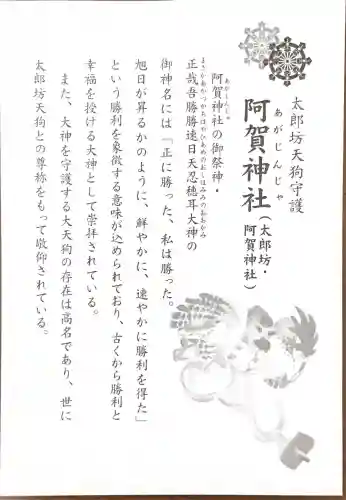 太郎坊天狗守護
阿賀神社(太郎坊・阿賀神社)
あがじんじゃ
阿賀神社の御祭神・
あがじんじゃ
正哉吾勝勝速日天忍穂耳大神の
まさかあかつかちはやひあめのおしほみみのおおかみ
御神名には「正に勝った、私は勝った。
旭日が昇るかのように、鮮やかに、速やかに勝利を得た」
という勝利を象徴する意味が込められており、古くから勝利と
幸福を授ける大神として崇拝されている。
また、大神を守護する大天狗の存在は高名であり、世に
太郎坊天狗との尊称をもって敬仰されている。